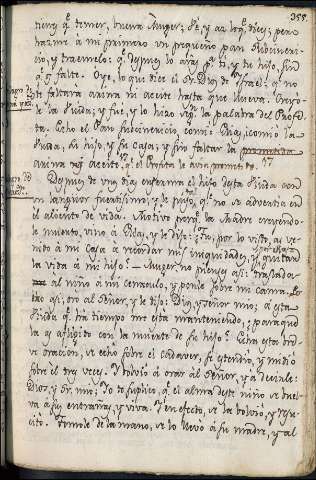 355.
tienes q.e temer, buena Muger: Ve, y az lo q.e dices; pero
hazme â mi primero un pequeño pan Subcineri-
cio, y traemelo: q.e despues lo aras p.a ti, y tu hijo, sin
q.e falte. Oye, lo que dice el Sr. Dios de Israel: q.e no
te faltara arina ni aceite hasta que llueva. Creyo-
le la Viuda; y fue, y lo hizo seg.n la palabra del Profe-
ta. Echo el Pan subcinericio, comiò Elias, comiò la
Viuda, su hijo, y su casa; y sin faltar la
arina y aceite q.e el Profeta le avia prometido.
Despues de unos dias enfermò el hijo desta Viuda con
un languor fuertissimo, y le puso, q.e no se advertia en
el aliento de vida. Motivo para q.e la Madre creyendo-
le muerto, vino â Elias, y le dijo: Tu, por lo visto, as ve-
nido â mi Casa â recordar mis iniquidades, y quitar
la vida â mi hijo: — Muger, no pienses asi: traslada-
al niño a mi cenaculo, y ponle sobre mi cama.
izo asi; orò al Señor, y le dijo: Dios, y Señor mio; â esta
Viuda q.e ha tiempo me esta manteniendo, ¿ para que
la as afligido con la muerte de su hijo? Echa esta bre-
ve oracion, se echò sobre el cadaver, se estendiò, y midiò
sobre el tres veces. I bolviò â orar al Señor, y a decirle:
Dios, y Sr. mio; Yo te suplico, q.e el alma deste niño se buel-
va â sus entrañas, y viva. I en efecto, se la bolviò, y resu-
citò. Tomole de la mano, se lo llevo â su madre, y al